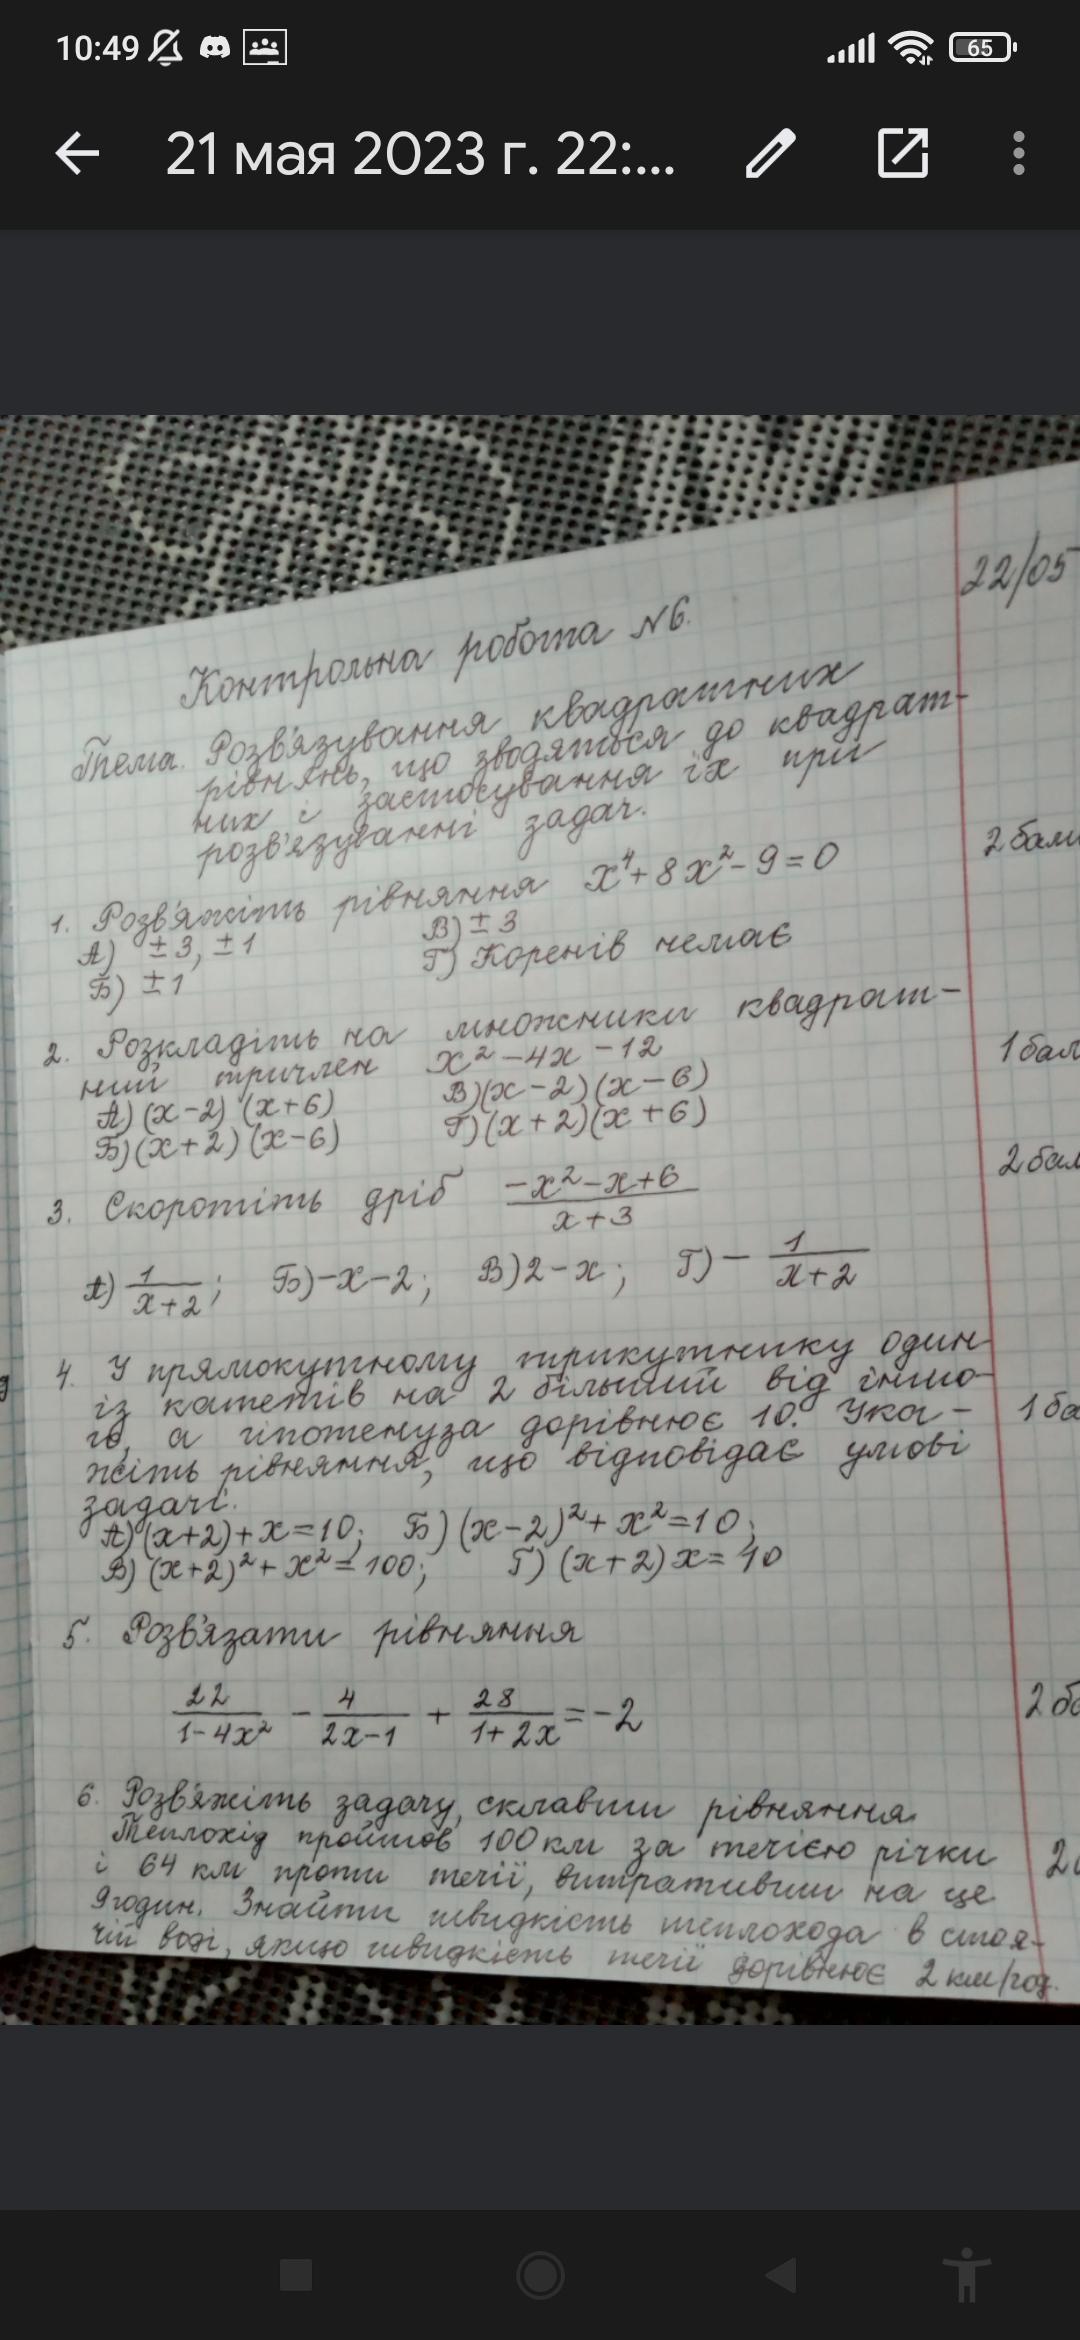 10:49
65
21 мая 2023 г. 22:...
22/05
Контрольна робота №6.
Тема. Розв'язування квадратних
рівнянь, що зводяться до квадрат-
них і застосування їх при
розв'язуванні задач.
1. Розв'яжіть рівняння x⁴+8x²-9=0 2 бали
А) ±3, ±1 В) ±3
Б) ±1 Г) Коренів немає
2. Розкладіть на множники квадрат-
ний тричлен x²-4x-12 1 бал
А) (x-2) (x+6) В) (x-2) (x-6)
Б) (x+2) (x-6) Г) (x+2)(x+6)
3. Скоротіть дріб (-x²-x+6)/(x+3) 2 бал
А) 1/(x+2); Б) -x-2; В) 2-x; Г) - 1/(x+2)
4. У прямокутному трикутнику один
із катетів на 2 більший від іншо-
го, а гіпотенуза дорівнює 10. Ука- 1 ба
жіть рівняння, що відповідає умові
задачі.
А) (x+2)+x=10; Б) (x-2)²+x²=10;
В) (x+2)²+x²=100; Г) (x+2)x=10
5. Розв'язати рівняння
22/(1-4x²) - 4/(2x-1) + 28/(1+2x) = -2 2 ба
6. Розв'яжіть задачу, склавши рівняння.
Теплохід пройшов 100 км за течією річки
і 64 км проти течії, витративши на це
9 годин. Знайти швидкість теплохода в стоя-
чій воді, якщо швидкість течії дорівнює 2 км/год.